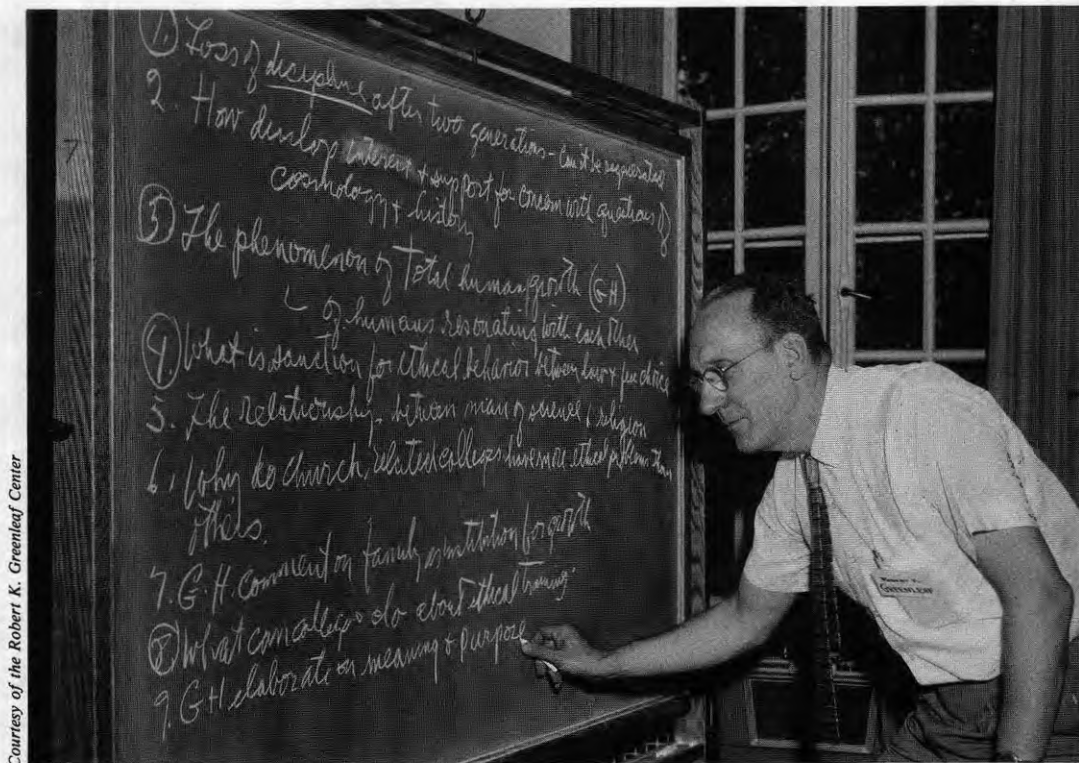 1. Loss of discipline after two generations - Can it be regenerated
2. How develop interest + support for concern with questions of
cosmology + history
3 The phenomenon of Total human growth (GH)
of humans resonating with each other
4. What is sanction for ethical behavior between law + free choice
5. The relationship between man of science & religion
6. Why do church related colleges have more ethical problems than
others.
7. G.H. comment on family as institution for growth
8 What can colleges do about ethical training
9. G H elaborate on meaning + purpose
7
GREENLEAF
Courtesy of the Robert K. Greenleaf Center